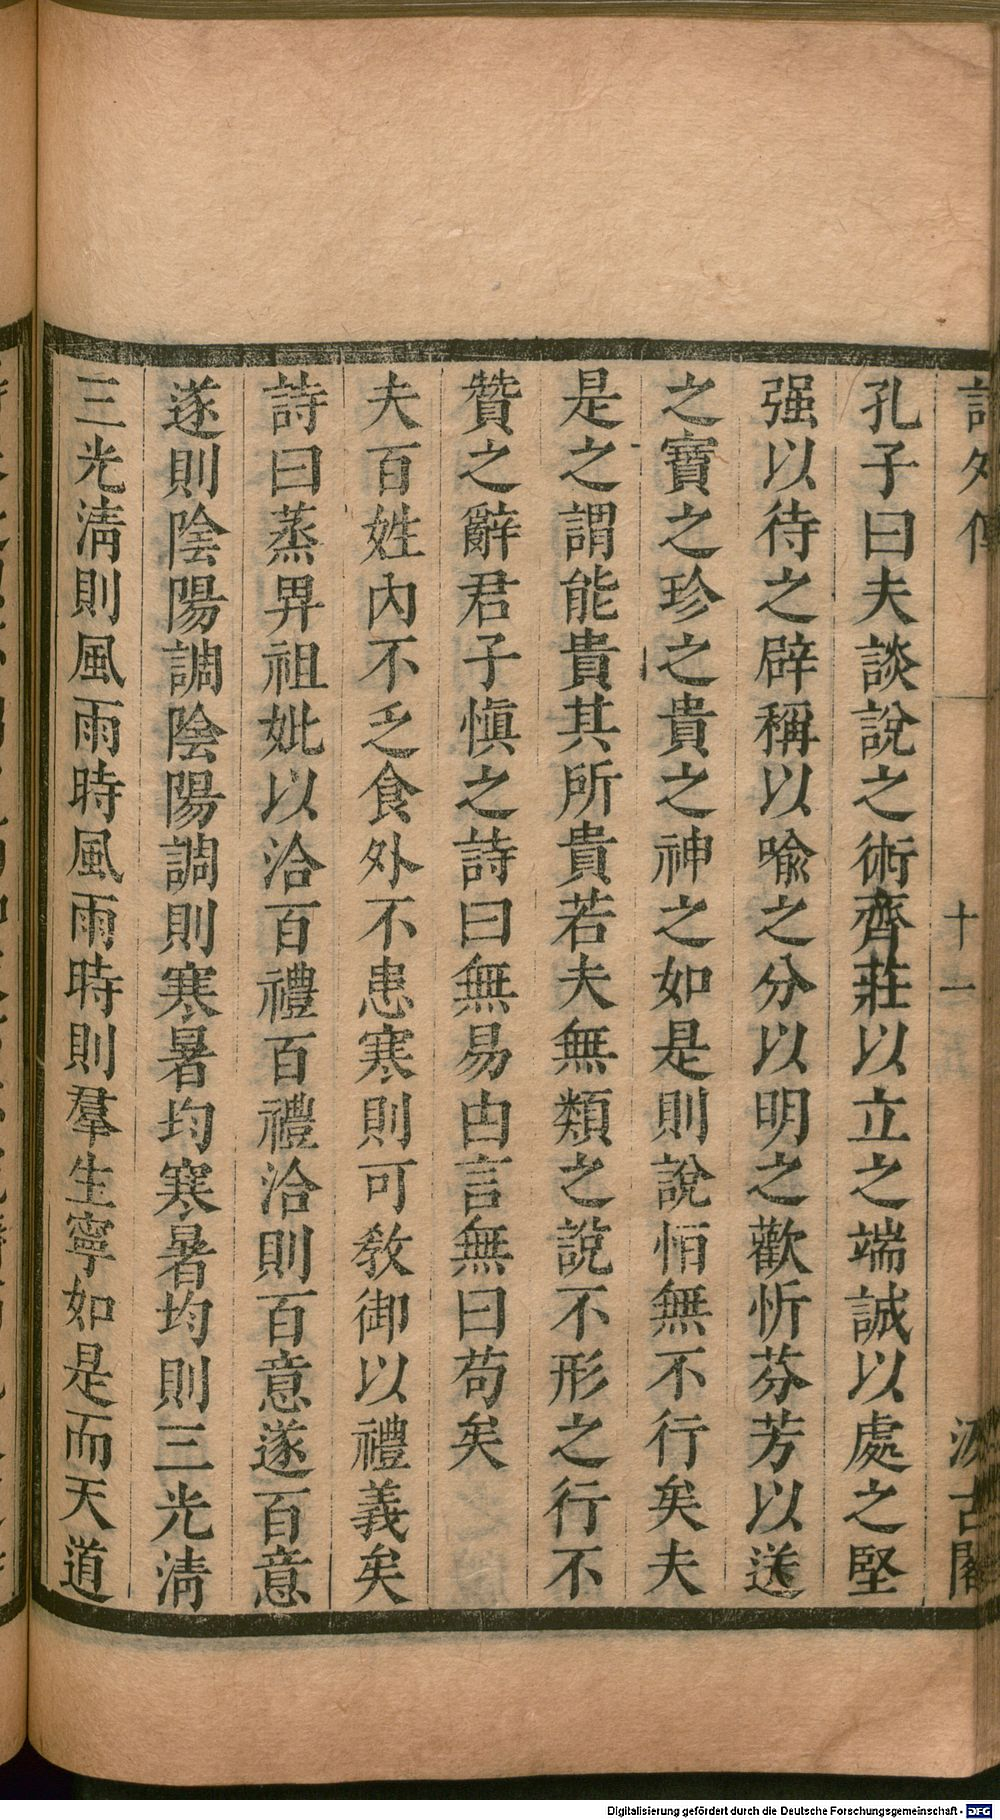 詩外傳
十一
汲古閣
孔子曰夫談說之術齊莊以立之端誠以處之堅
强以待之辟稱以喻之分以明之歡忻芬芳以送
之寶之珍之貴之神之如是則說恒無不行矣夫
是之謂能貴其所貴若夫無類之說不形之行不
贊之辭君子慎之詩曰無易由言無曰苟矣
夫百姓內不乏食外不患寒則可敎御以禮義矣
詩曰蒸畀祖妣以洽百禮百禮洽則百意遂百意
遂則陰陽調陰陽調則寒暑均寒暑均則三光淸
三光淸則風雨時風雨時則羣生寧如是而天道
Digitalisierung gefördert durch die Deutsche Forschungsgemeinschaft - DFG